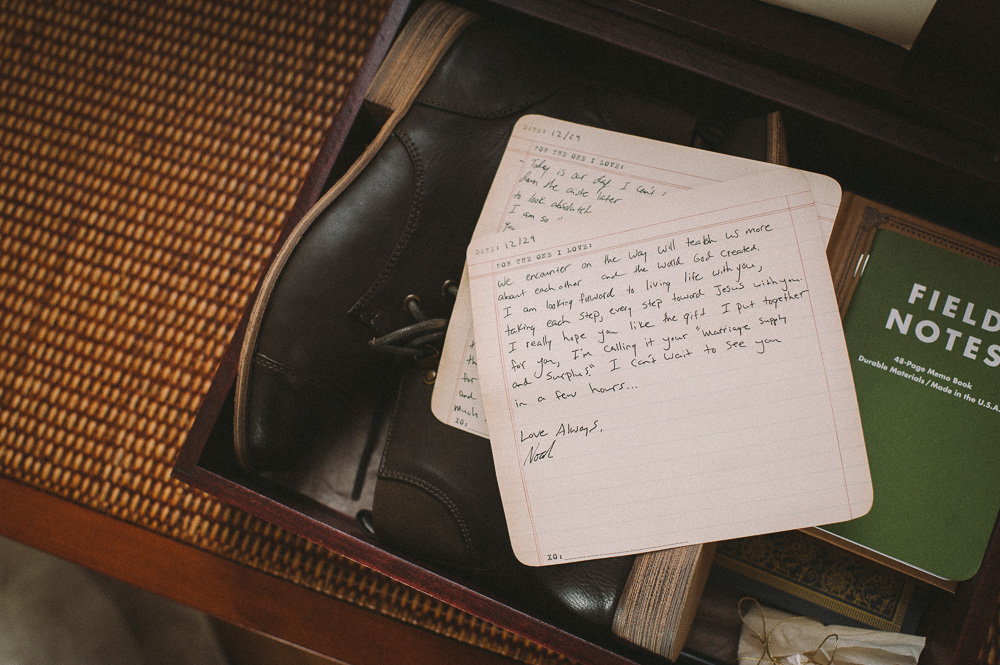 DATE: 12/29
FOR THE ONE I LOVE:
- Today is our day. I can't
down the aisle later
to look absolutely
I am so
You
DATE: 12/29
FOR THE ONE I LOVE:
we encounter on the way will teach us more
about each other and the world God created.
I am looking forward to living life with you,
taking each step, every step toward Jesus with you.
I really hope you like the gift I put together
for you, I'm calling it your "marriage supply
and surplus." I can't wait to see you
in a few hours...
Love Always,
IO:
th
for
and
much
IO:
FIELD
NOTES
48-Page Memo Book
Durable Materials / Made in the U.S.A.